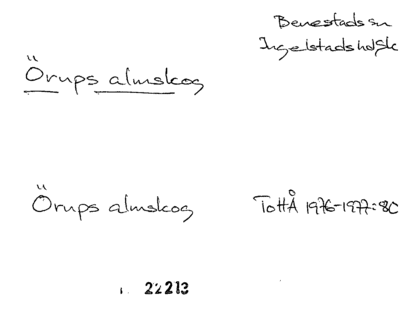 Benestads sn
Ingelstads hd Sk
Örups almskog
Örups almskog
TottÅ 1976-1977:80
22213